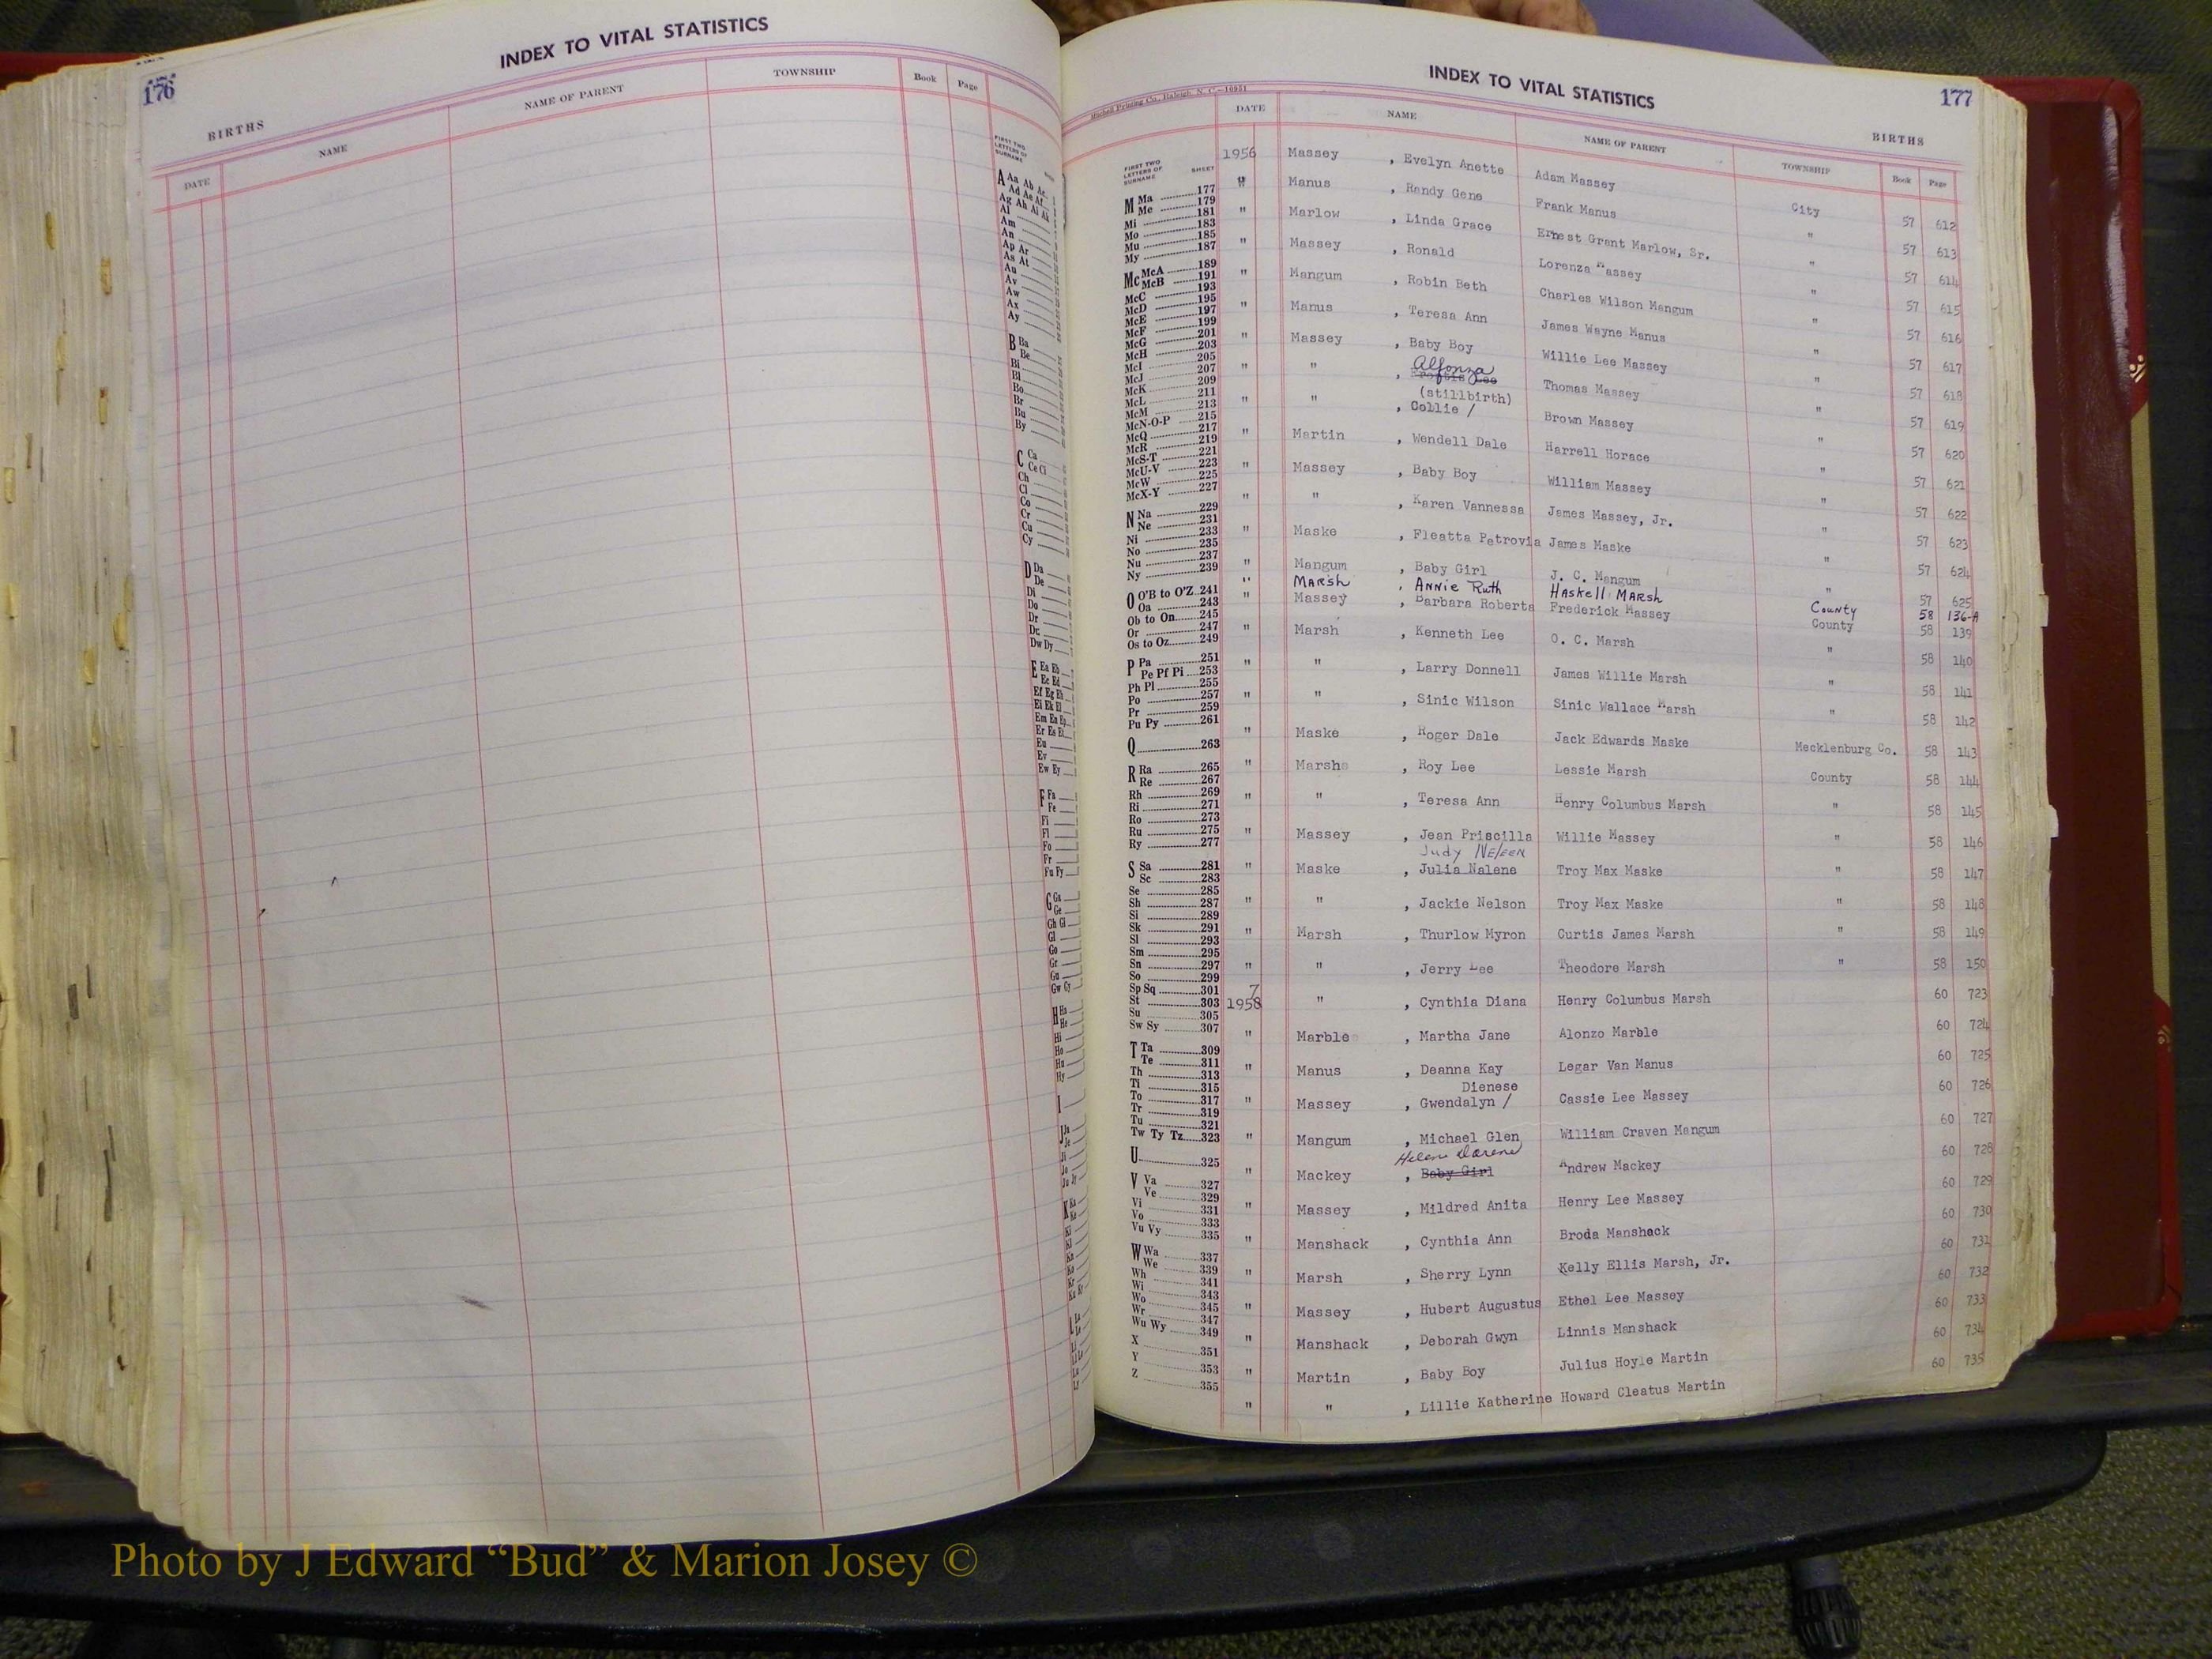 176
INDEX TO VITAL STATISTICS
BIRTHS
DATE NAME NAME OF PARENT TOWNSHIP Book Page
FIRST TWO LETTERS OF SURNAME
A Aa Ab Ac
Ad Ae Af
Ag Ah Ai Ak
Al
Am
An
Ap Ar
As At
Au
Av
Aw
Ax
Ay
B Ba
Be
Bi
Bl
Bo
Br
Bu
By
C Ca
Ce Ci
Ch
Cl
Co
Cr
Cu
Cy
D Da
De
Di
Do
Dr
Du
Dw Dy
E Ea Eb
Ec Ed
Ef Eg Eh
Ei Ek El
Em En Ep
Er Es Et
Eu
Ev
Ew Ey
F Fa
Fe
Fi
Fl
Fo
Fr
Fu Fy
G Ga
Ge
Gh Gi
Gl
Go
Gr
Gu
Gw Gy
H Ha
He
Hi
Ho
Hu
Hy
I
Mitchell Printing Co., Raleigh, N. C.—10951
INDEX TO VITAL STATISTICS
177
BIRTHS
DATE NAME NAME OF PARENT TOWNSHIP Book Page
FIRST TWO LETTERS OF SURNAME SHEET
M Ma 177
Me 179
Mi 181
Mo 183
Mu 185
My 187
Mc McA 189
McB 191
McC 193
McD 195
McE 197
McF 199
McG 201
McH 203
McI 205
McJ 207
McK 209
McL 211
McM 213
McN-O-P 215
McQ 217
McR 219
McS-T 221
McU-V 223
McW 225
McX-Y 227
N Na 229
Ne 231
Ni 233
No 235
Nu 237
Ny 239
O O'B to O'Z 241
Oa 243
Ob to On 245
Or 247
Os to Oz 249
P Pa 251
Pe Pf Pi 253
Ph Pl 255
Po 257
Pr 259
Pu Py 261
Q 263
R Ra 265
Re 267
Rh 269
Ri 271
Ro 273
Ru 275
Ry 277
S Sa 281
Sc 283
Se 285
Sh 287
Si 289
Sk 291
Sl 293
Sm 295
Sn 297
So 299
Sp Sq 301
St 303
Su 305
Sw Sy 307
T Ta 309
Te 311
Th 313
Ti 315
To 317
Tr 319
Tu 321
Tw Ty Tz 323
U 325
V Va 327
Ve 329
Vi 331
Vo 333
Vu Vy 335
W Wa 337
We 339
Wh 341
Wi 343
Wo 345
Wr 347
Wu Wy 349
X 351
Y 353
Z 355
1956 Massey , Evelyn Anette Adam Massey City 57 612
" Manus , Randy Gene Frank Manus " 57 613
" Marlow , Linda Grace Ernest Grant Marlow, Sr. " 57 614
" Massey , Ronald Lorenza Massey " 57 615
" Mangum , Robin Beth Charles Wilson Mangum " 57 616
" Manus , Teresa Ann James Wayne Manus " 57 617
" Massey , Baby Boy Willie Lee Massey " 57 618
Alfonza
" " , Lee Thomas Massey " 57 619
(stillbirth)
" " , Collie / Brown Massey " 57 620
" Martin , Wendell Dale Harrell Horace " 57 621
" Massey , Baby Boy William Massey " 57 622
" " , Karen Vannessa James Massey, Jr. " 57 623
" Maske , Fleatta Petrovia James Maske " 57 624
" Mangum , Baby Girl J. C. Mangum " 57 625
" MARSH , ANNIE Ruth HASKELL MARSH County 58 136-A
" Massey , Barbara Roberta Frederick Massey County 58 139
" Marsh , Kenneth Lee O. C. Marsh " 58 140
" " , Larry Donnell James Willie Marsh " 58 141
" " , Sinic Wilson Sinic Wallace Marsh " 58 142
" Maske , Roger Dale Jack Edwards Maske Mecklenburg Co. 58 143
" Marshs , Roy Lee Lessie Marsh County 58 144
" " , Teresa Ann Henry Columbus Marsh " 58 145
" Massey , Jean Priscilla Willie Massey " 58 146
Judy NELEEN
" Maske , Julia Nalene Troy Max Maske " 58 147
" " , Jackie Nelson Troy Max Maske " 58 148
" Marsh , Thurlow Myron Curtis James Marsh " 58 149
" " , Jerry Lee Theodore Marsh " 58 150
7
1958 " , Cynthia Diana Henry Columbus Marsh 60 723
" Marble , Martha Jane Alonzo Marble 60 724
" Manus , Deanna Kay Legar Van Manus 60 725
Dienese
" Massey , Gwendalyn / Cassie Lee Massey 60 726
" Mangum , Michael Glen William Craven Mangum 60 727
Helen Darene
" Mackey , Baby Girl Andrew Mackey 60 728
" Massey , Mildred Anita Henry Lee Massey 60 729
" Manshack , Cynthia Ann Broda Manshack 60 730
" Marsh , Sherry Lynn Kelly Ellis Marsh, Jr. 60 731
" Massey , Hubert Augustus Ethel Lee Massey 60 732
" Manshack , Deborah Gwyn Linnis Manshack 60 733
" Martin , Baby Boy Julius Hoyle Martin 60 734
" " , Lillie Katherine Howard Cleatus Martin 60 735
Photo by J Edward “Bud” & Marion Josey ©